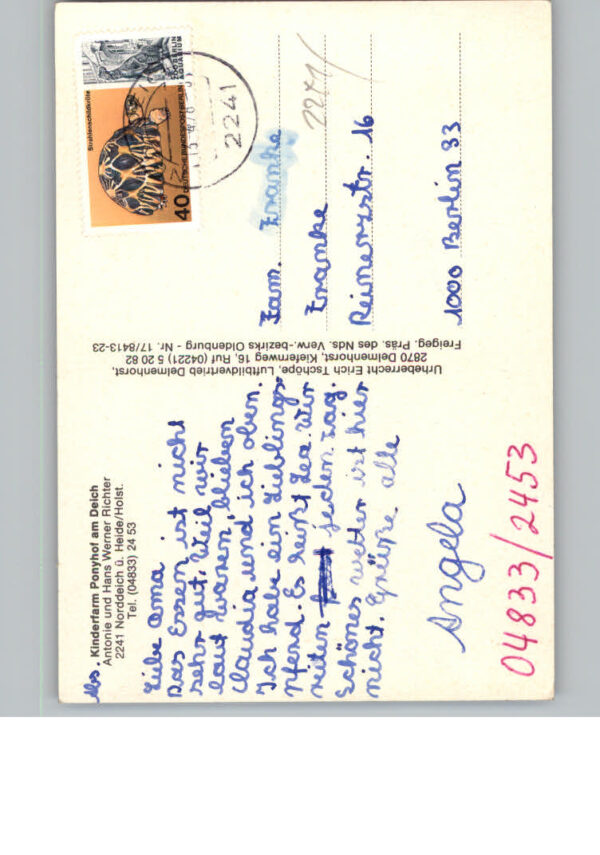 Abs. Kinderfarm Ponyhof am Deich
Antonie und Hans Werner Richter
2241 Norddeich ü. Heide/Holst.
Tel. (04833) 24 53
Liebe Oma
Das Essen ist nicht
sehr gut. Weil wir
laut waren, blieben
Claudia und ich oben.
Ich habe ein Lieblings
Pferd. Es heißt Lea. Wir
reiten jeden Tag.
Schönes wetter ist hier
nicht. Grüße alle
Angela
04833/2453
Urheberrecht Erich Tschöpe, Luftbildvertrieb Delmenhorst,
2870 Delmenhorst, Kiefernweg 16, Ruf (04221) 5 20 82
Freigeg. Präs. des Nds. Verw.-bezirks Oldenburg - Nr. 17/8413-23
Strahlenschildkröte
40 DEUTSCHE BUNDESPOST BERLIN
AQUARIUM
BERLIN
2241
2241/
Fam. Franke
Franke
Reinerzstr. 16
1000 Berlin 33